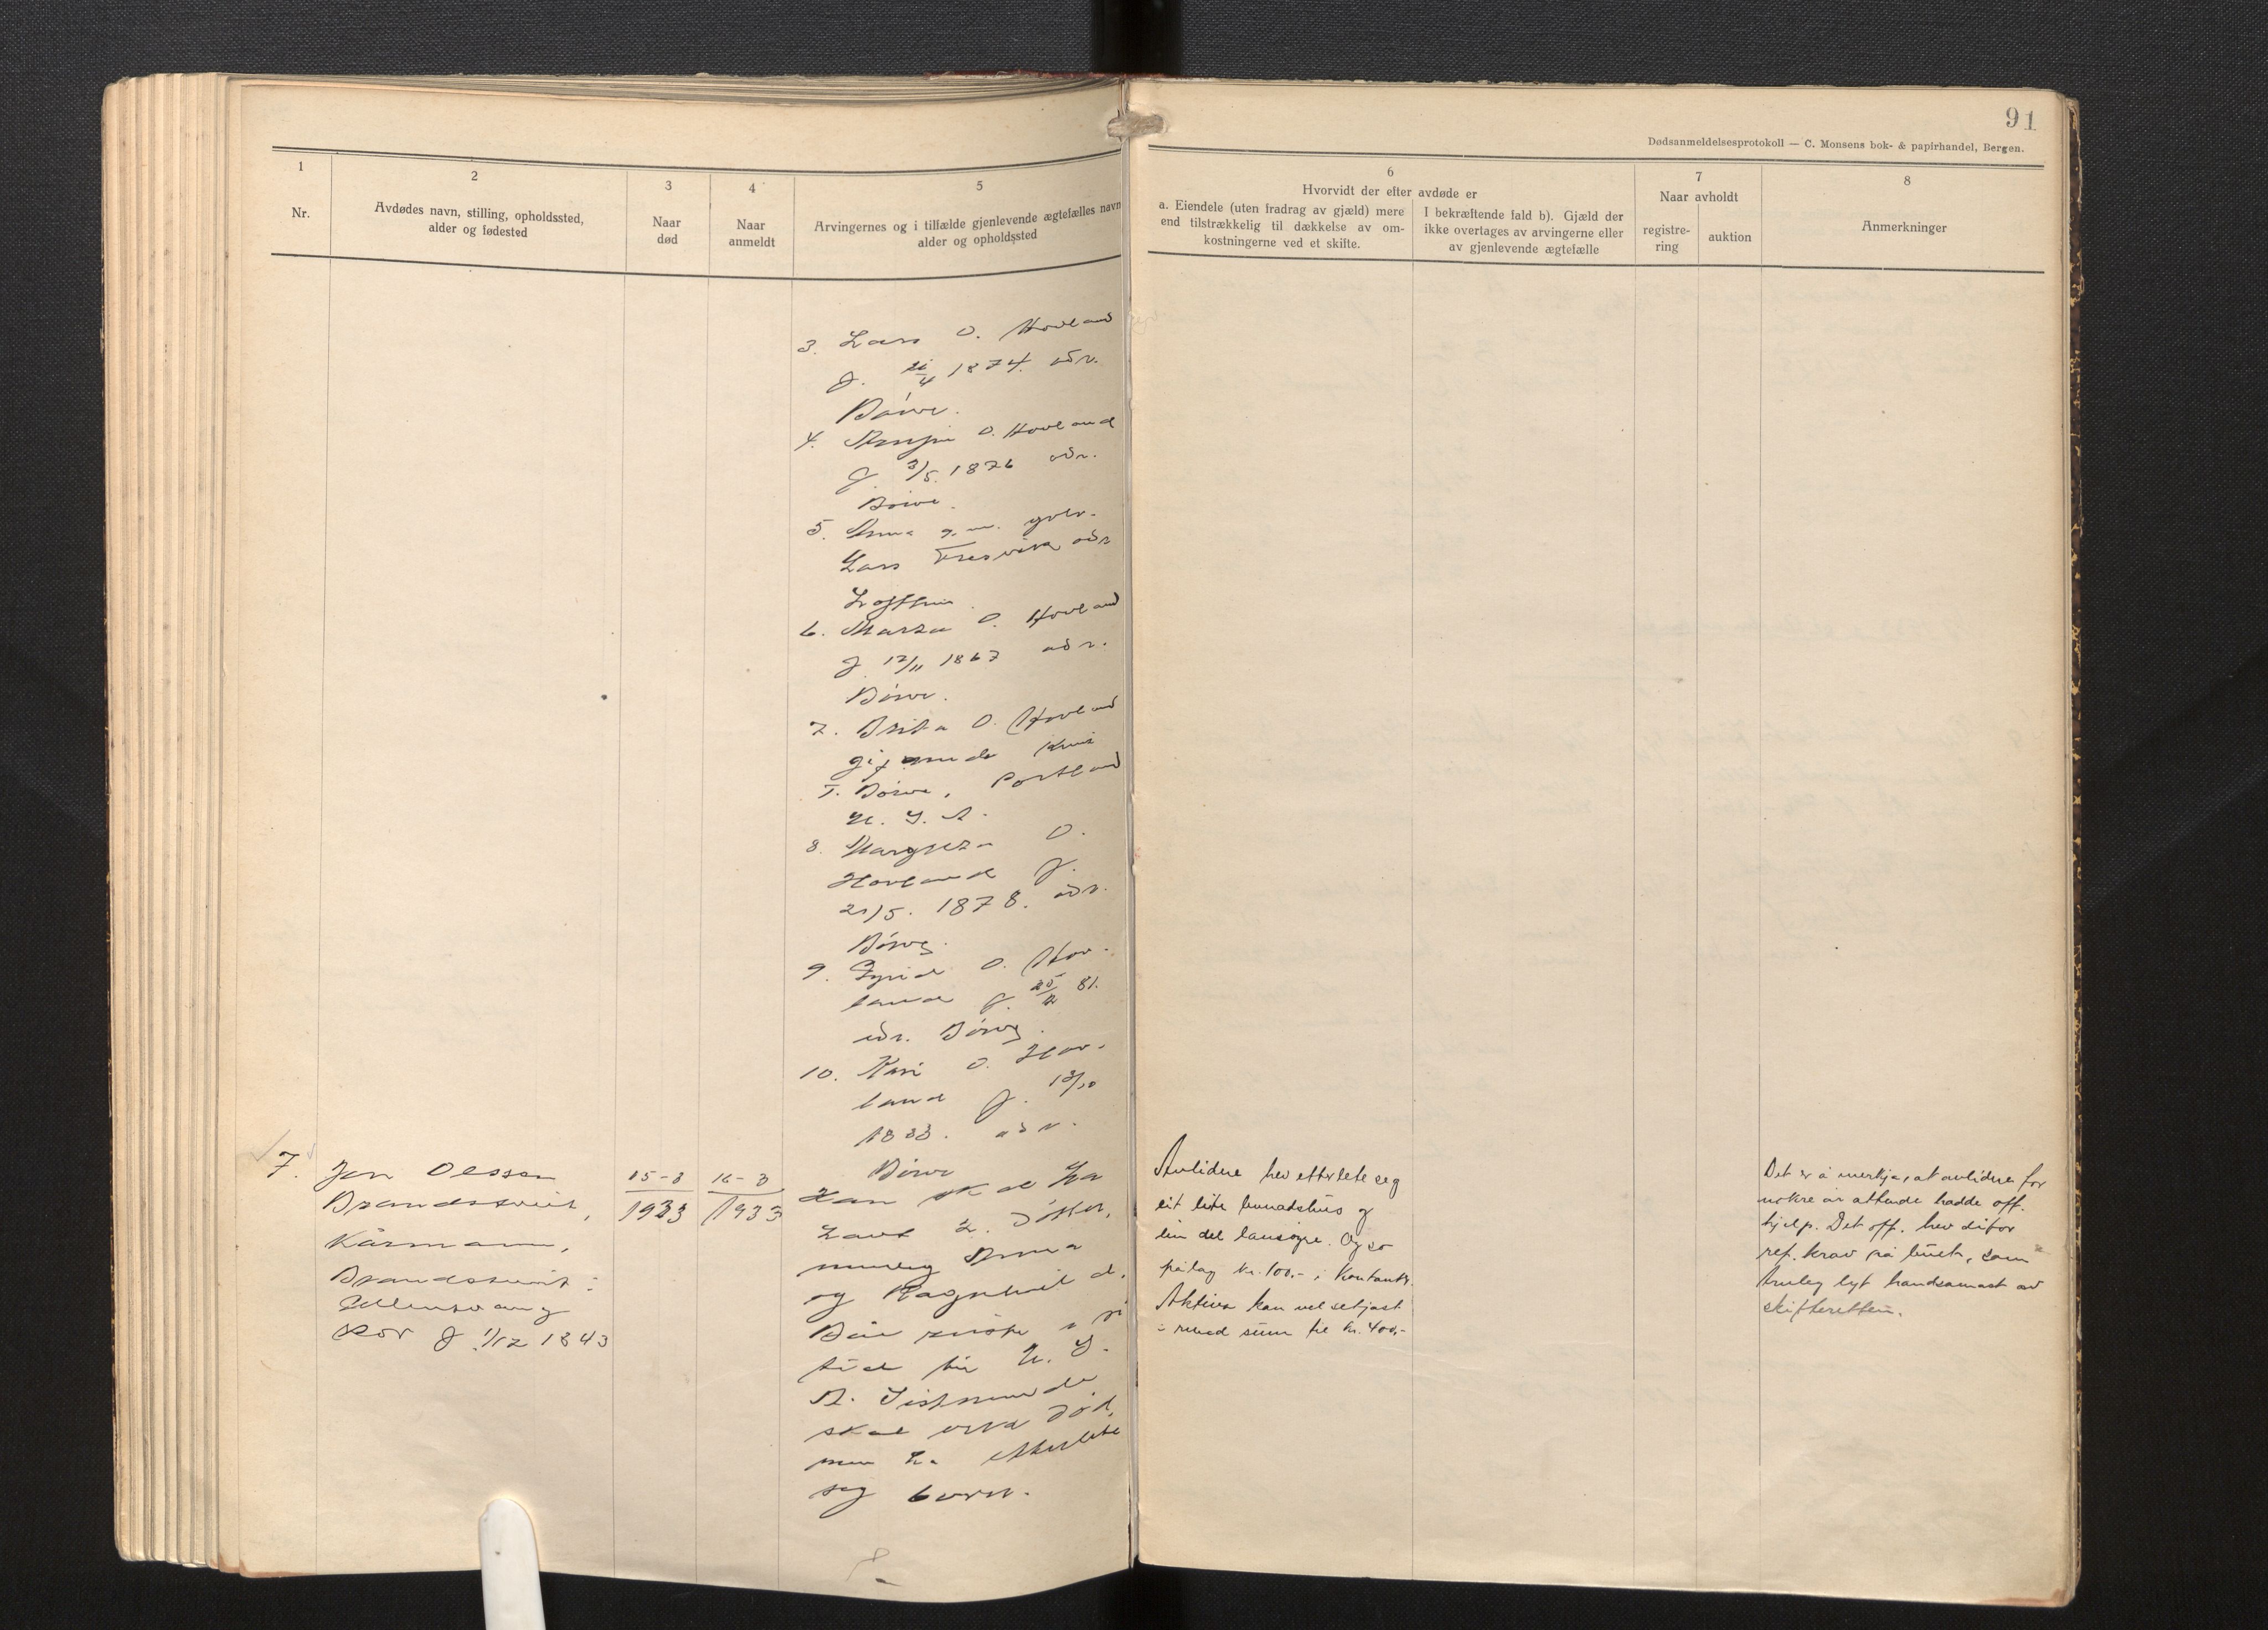 91
Dødsanmeldelsesprotokoll — C. Monsens bok- & papirhandel, Bergen.
1
Nr.
2
Avdødes navn, stilling, opholdssted,
alder og fødested
3
Naar
død
4
Naar
anmeldt
5
Arvingernes og i tilfælde gjenlevende ægtefælles navn
alder og opholdssted
6
Hvorvidt der efter avdøde er
a. Eiendele (uten fradrag av gjæld) mere
end tilstrækkelig til dækkelse av om-
kostningerne ved et skifte.
I bekræftende fald b). Gjæld der
ikke overtages av arvingerne eller
av gjenlevende ægtefælle
7
Naar avholdt
registre-
ring
auktion
8
Anmerkninger
3. Lars O. Hovland
f. 1874. adr.
Børve.
4. O. Hovland
f. 3/5. 1876 adr.
Børve.
5. Anna g. m. gbr.
Lars adr
Lofthus.
6. Marta O. Hovland
f. 17/11 1867 adr.
Børve.
7. Brita O. Hovland
gift med
T. Børve, Portland
U. S. A.
8. Margreta O.
Hovland f.
21/5. 1878. adr.
Børve.
9. Gyrid O. Hov-
land f. 81.
adr. Børve.
10. Kari O. Hov-
land f. 13/10
1883. adr.
Børve
7.
Jon Olsson
Brandstveit,
Kårmann,
Brandstveit
Ullensvang
for f 1/12 1843
15-3
1933
16-3
1933
Han skal ha
havt 2 døtter,
Anna
og Ragnhild.
Båe reiste
tid til U. S.
A. Sistnemnde
skal vera død,
men ha etterlete
seg born.
Avlidne hev etterlete seg
eit lite bunadshus og
ein del lausøyre. Og so
pålag kr. 100,- i kontantr.
Aktiva kan vel setjast
i rund sum til kr. 400,-
Det er å merkja, at avlidne for
nokre år attende hadde off.
hjelp. Det off. hev difor
ref. krav på buet, som
truleg lyt handsamast av
skifteretten.